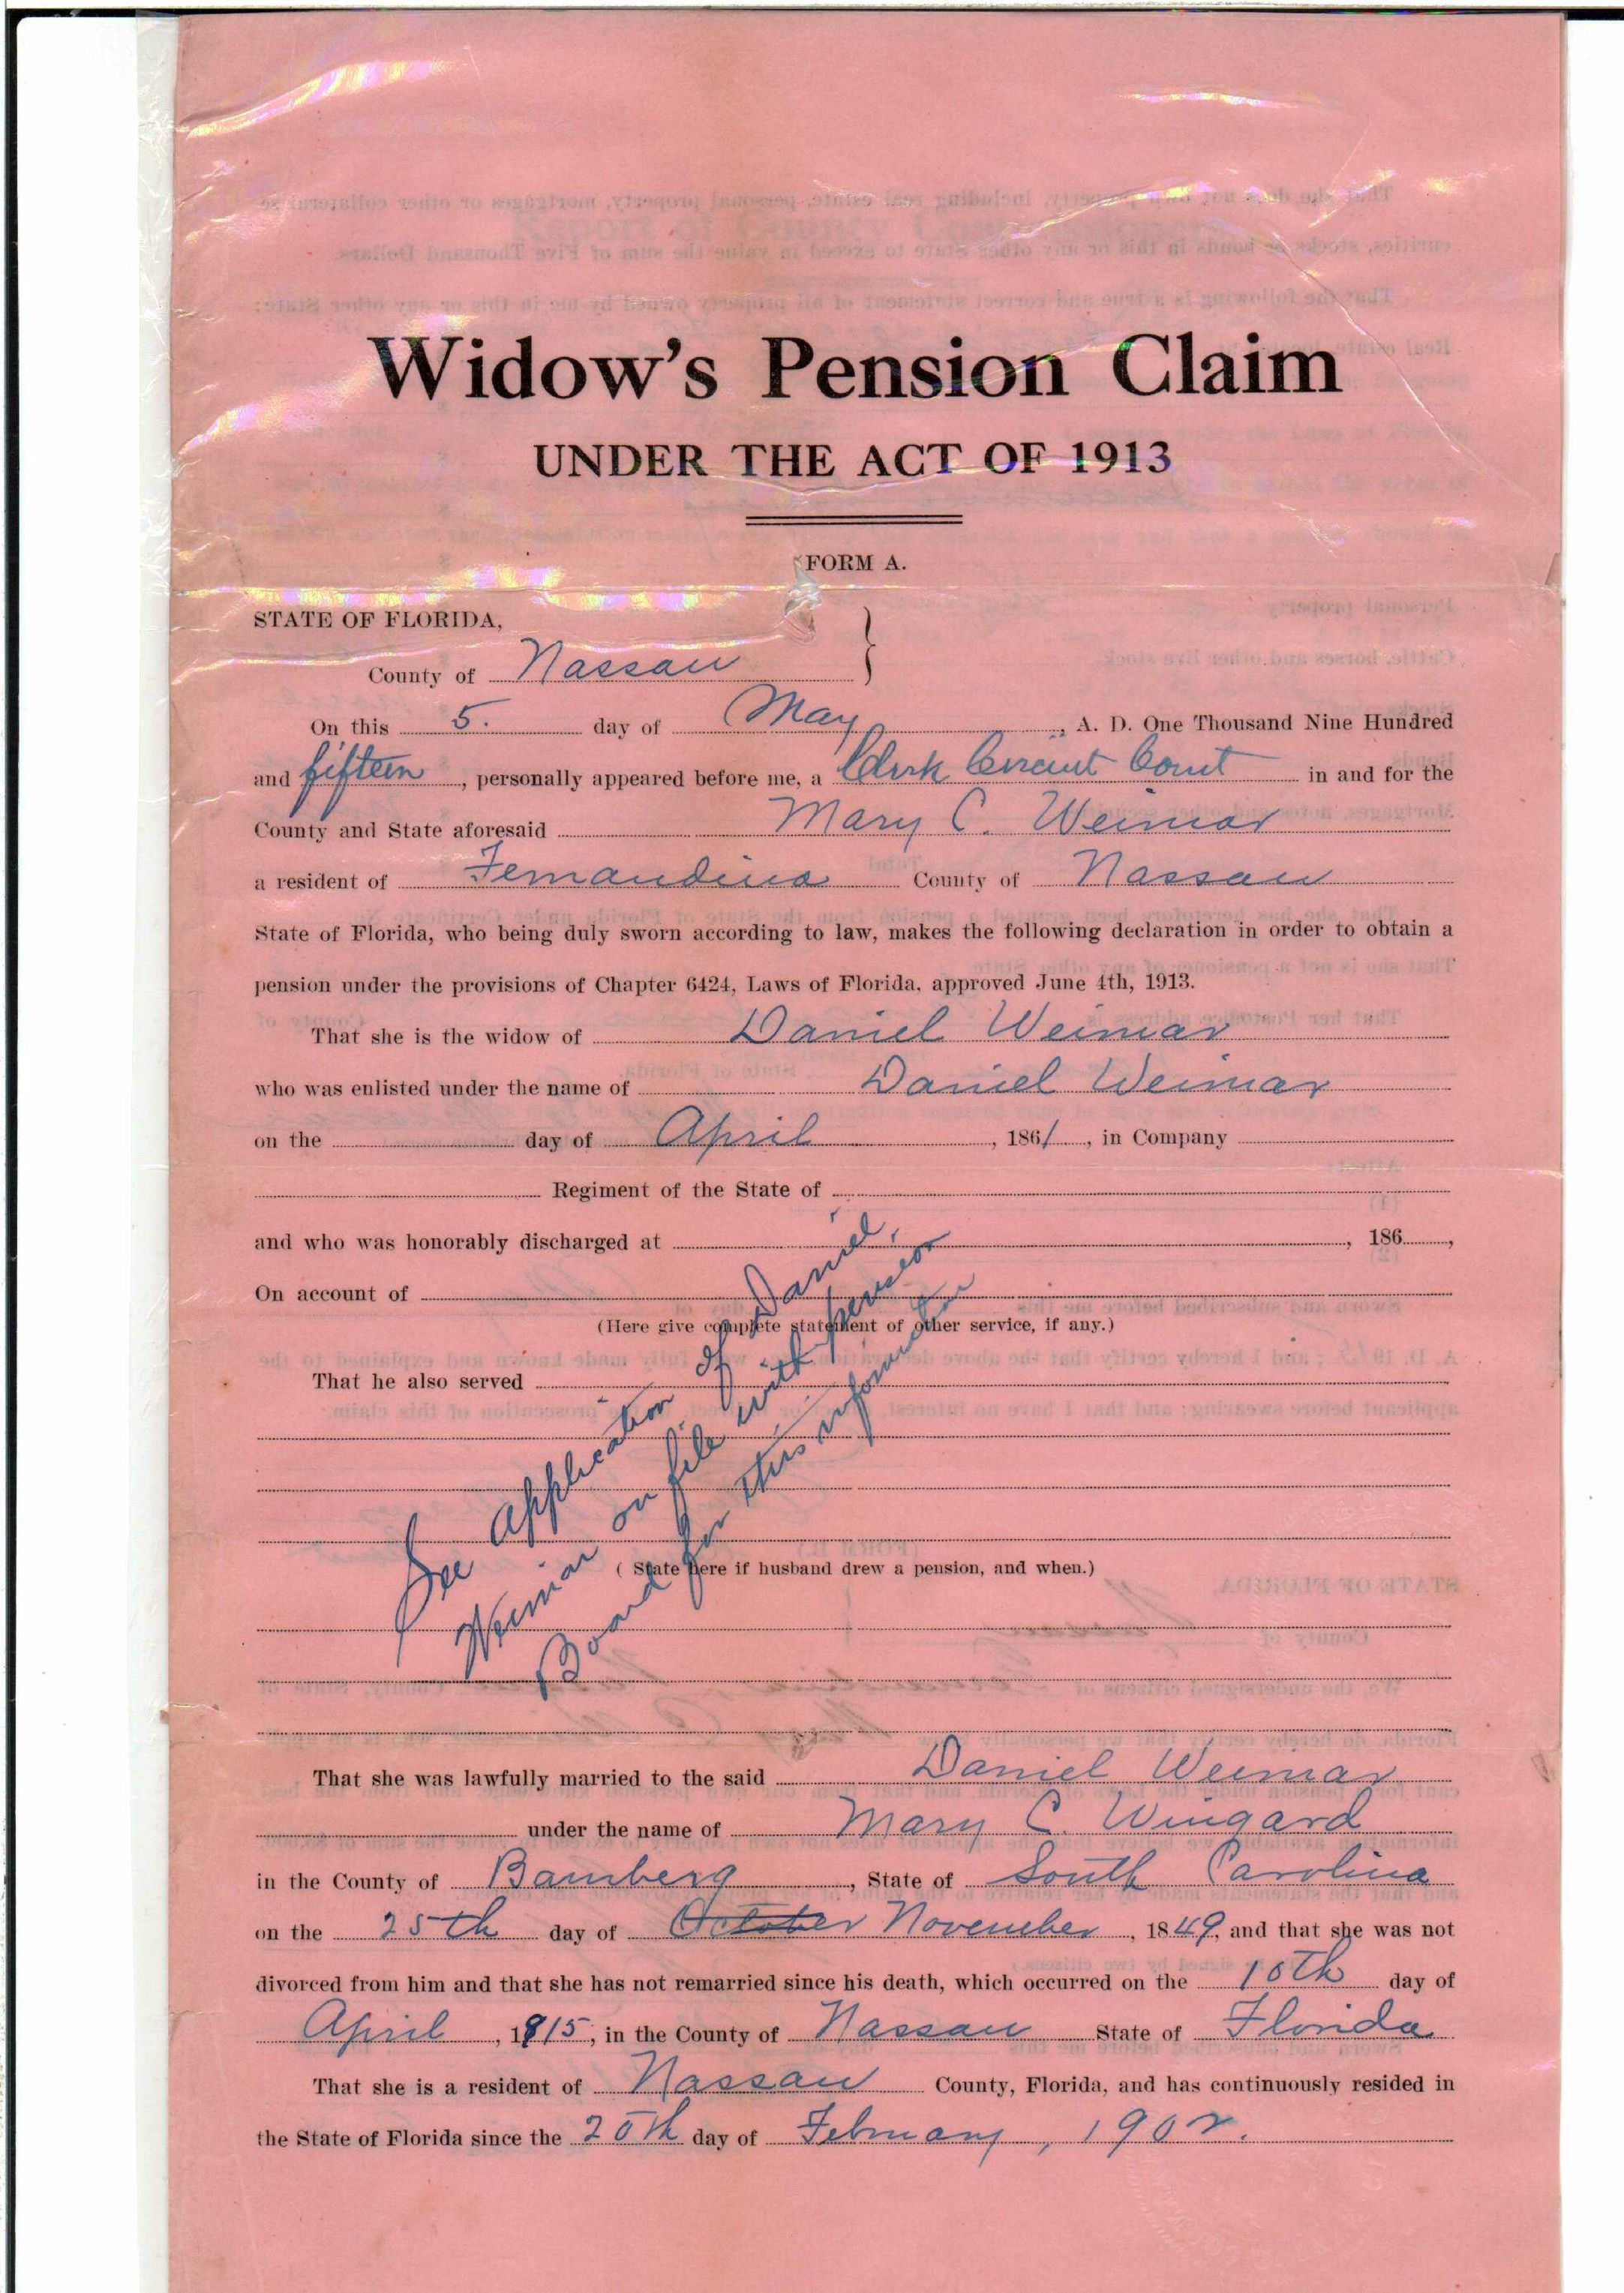 Widow's Pension Claim
UNDER THE ACT OF 1913
FORM A.
STATE OF FLORIDA,
County of Nassau
On this 5. day of May, A. D. One Thousand Nine Hundred
and fifteen, personally appeared before me, a Clerk Circuit Court in and for the
County and State aforesaid Mary C. Weimar
a resident of Fernandina County of Nassau
State of Florida, who being duly sworn according to law, makes the following declaration in order to obtain a
pension under the provisions of Chapter 6424, Laws of Florida, approved June 4th, 1913.
That she is the widow of Daniel Weimar
who was enlisted under the name of Daniel Weimar
on the day of April, 1861, in Company
Regiment of the State of
and who was honorably discharged at , 186 ,
On account of
(Here give complete statement of other service, if any.)
That he also served
See application of Daniel
Weimar on file with pension
Board for this information
( State here if husband drew a pension, and when.)
That she was lawfully married to the said Daniel Weimar
under the name of Mary C. Wingard
in the County of Bamberg, State of South Carolina
on the 25th day of October November, 1849, and that she was not
divorced from him and that she has not remarried since his death, which occurred on the 10th day of
April, 1915, in the County of Nassau State of Florida
That she is a resident of Nassau County, Florida, and has continuously resided in
the State of Florida since the 20th day of February, 1902.